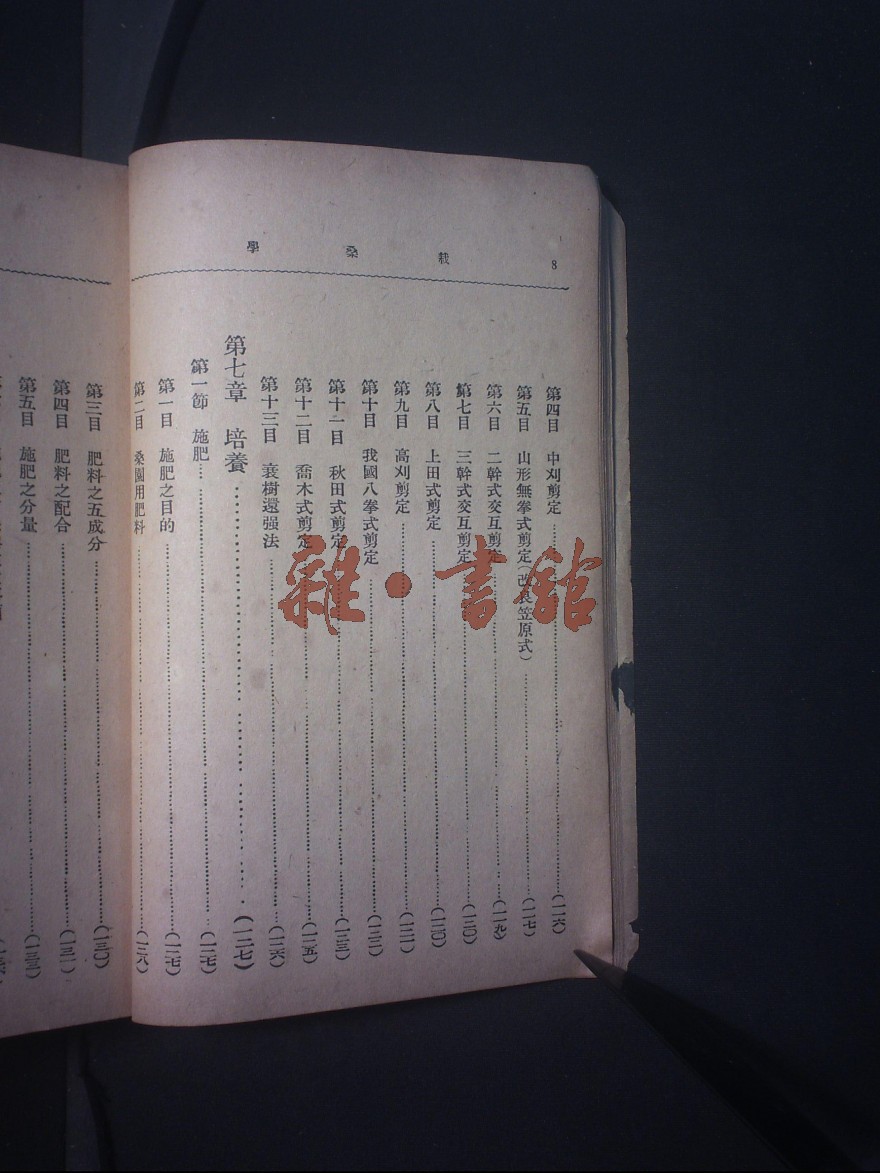 栽桑學
8
第四目 中刈剪定……(一一六)
第五目 山形無拳式剪定(改良笠原式)……(一一七)
第六目 二幹式交互剪定……(一一九)
第七目 三幹式交互剪定……(一二〇)
第八目 上田式剪定……(一二〇)
第九目 高刈剪定……(一二一)
第十目 我國八拳式剪定……(一二二)
第十一目 秋田式剪定……(一二三)
第十二目 喬木式剪定……(一二五)
第十三目 衰樹還强法……(一二六)
第七章 培養……(一二七)
第一節 施肥……(一二七)
第一目 施肥之目的……(一二七)
第二目 桑園用肥料……(一二八)
第三目 肥料之五成分……(一三〇)
第四目 肥料之配合……(一三一)
第五目 施肥之分量……(一三三)
雜·書館